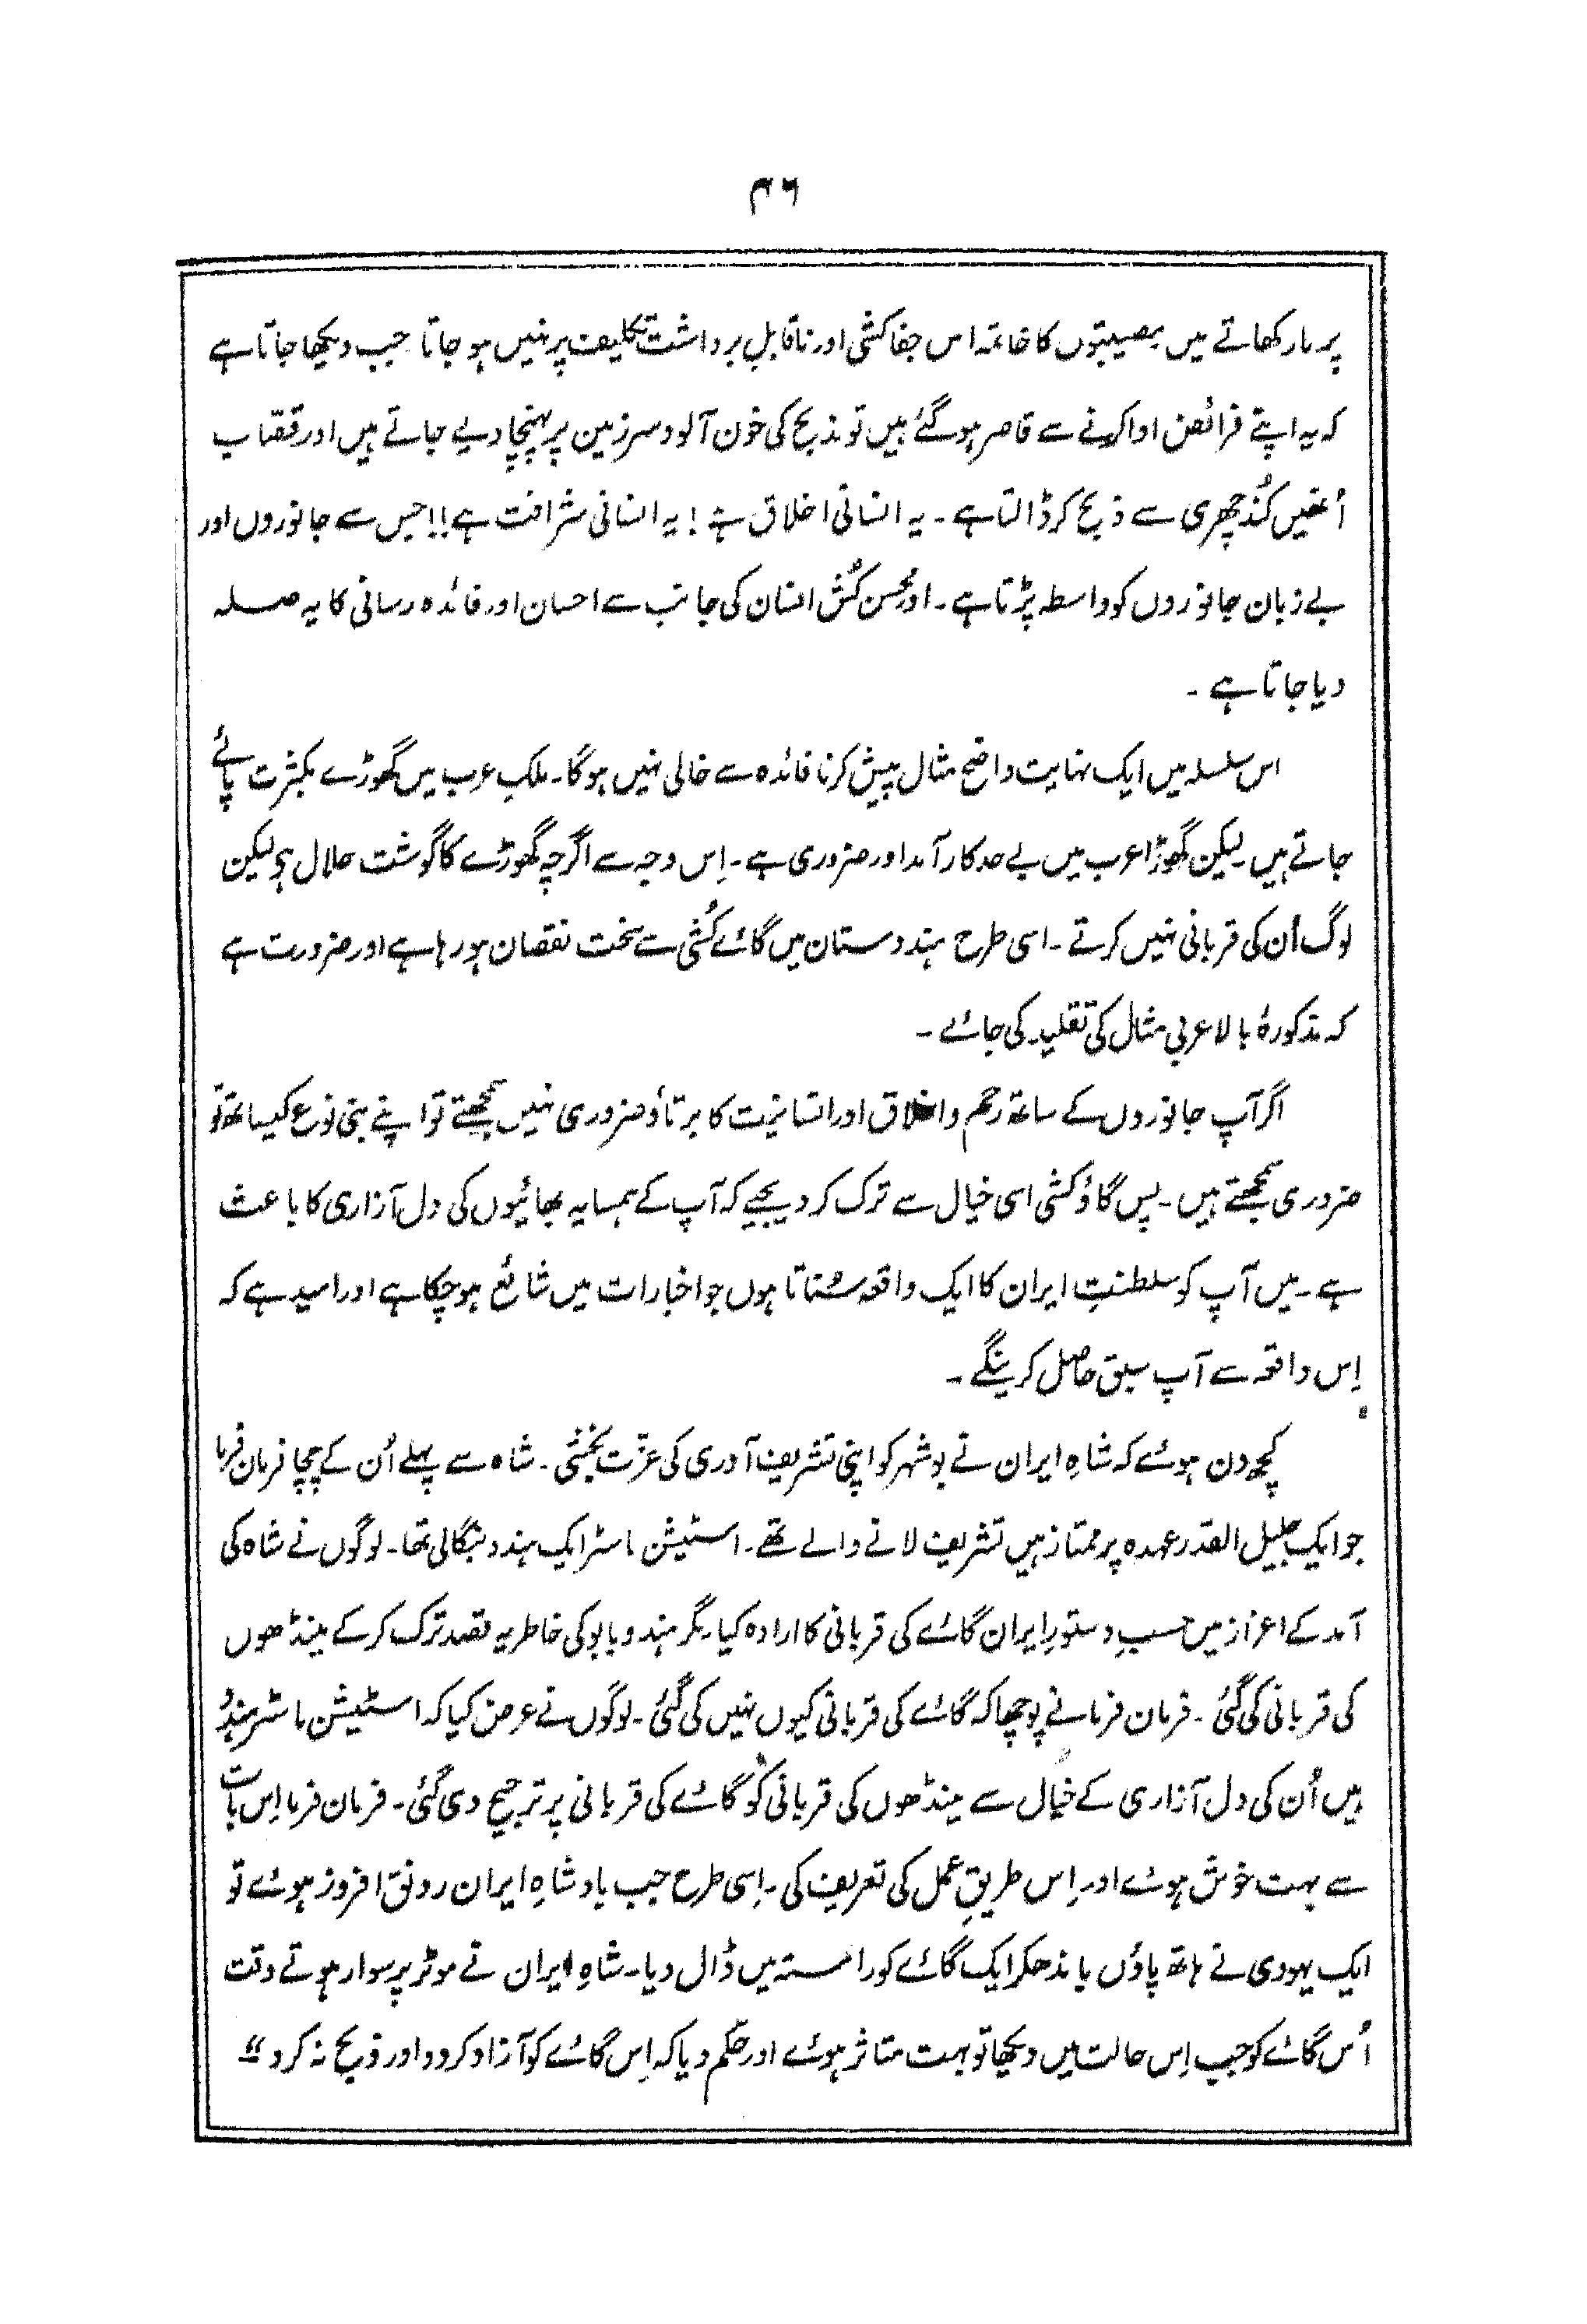 ۳۶
پر مار کھاتے میں مصیبتوں کا خاتمہ اس جفا کشی اور ناقابلِ برداشت تکلیف پر نہیں ہو جاتا جب دیکھا جاتا ہے
کہ یہ اپنے فرائض ادا کرنے سے قاصر ہو گئے ہیں تو مذبح کی خون آلود سرزمین پر پہنچا دیے جاتے ہیں اور قصّاب
اُنھیں کُند چھری سے ذبح کر ڈالتا ہے۔ یہ انسانی اخلاق ہے ! یہ انسانی شرافت ہے !! جس سے جانوروں اور
بے زبان جانوروں کو واسطہ پڑتا ہے۔ اور محسن کُش انسان کی جانب سے احسان اور فائدہ رسانی کا یہ صلہ
دیا جاتا ہے ۔
اس سلسلہ میں ایک نہایت واضح مثال پیش کرنا فائدہ سے خالی نہیں ہوگا۔ ملکِ عرب میں گھوڑے بکثرت پائے
جاتے ہیں۔ لیکن گھوڑا عرب میں بے حد کار آمد اور ضروری ہے۔ اِس وجہ سے اگرچہ گھوڑے کا گوشت حلال ہی لیکن
لوگ اُن کی قربانی نہیں کرتے ۔ اسی طرح ہندوستان میں گائے کُشی سے سخت نقصان ہو رہا ہے اور ضرورت ہے
کہ مذکورۂ بالا عربی مثال کی تقلید کی جائے ۔
اگر آپ جانوروں کے ساتھ رحم و اخلاق اور انسانیت کا برتاؤ ضروری نہیں سمجھتے تو اپنے بنی نوع کیساتھ تو
ضروری سمجھتے ہیں۔ پس گاؤکشی اسی خیال سے ترک کر دیجیے کہ آپ کے ہمسایہ بھائیوں کی دل آزاری کا باعث
ہے ۔ میں آپ کو سلطنتِ ایران کا ایک واقعہ سُناتا ہوں جو اخبارات میں شائع ہو چکا ہے اور امید ہے کہ
اِس واقعہ سے آپ سبق حاصل کرینگے ۔
کچھ دن ہوئے کہ شاہِ ایران نے بوشہر کو اپنی تشریف آوری کی عزّت بخشی ۔ شاہ سے پہلے اُن کے چچا فرمان فرما
جو ایک جلیل القدر عہدہ پر ممتاز ہیں تشریف لانے والے تھے ۔ اسٹیشن ماسٹر ایک ہندو بنگالی تھا۔ لوگوں نے شاہ کی
آمد کے اعزاز میں حسبِ دستورِ ایران گائے کی قربانی کا ارادہ کیا۔ مگر ہندو بابو کی خاطر یہ قصد ترک کر کے مینڈھوں
کی قربانی کی گئی ۔ فرمان فرما نے پوچھا کہ گائے کی قربانی کیوں نہیں کی گئی ۔ لوگوں نے عرض کیا کہ اسٹیشن ماسٹر ہندُو
ہیں اُن کی دل آزاری کے خیال سے مینڈھوں کی قربانی کو گائے کی قربانی پر ترجیح دی گئی ۔ فرمان فرما اِس بات
سے بہت خوش ہوئے اور اِس طریقِ عمل کی تعریف کی۔ اِسی طرح جب بادشاہِ ایران رونق افروز ہوئے تو
ایک یہودی نے ہاتھ پاؤں باندھکر ایک گائے کو راستہ میں ڈال دیا۔ شاہِ ایران نے موٹر پر سوار ہوتے وقت
اُس گائے کو جب اِس حالت میں دیکھا تو بہت متاثر ہوئے اور حکم دیا کہ اِس گائے کو آزاد کردو اور ذبح نہ کرو ۔"